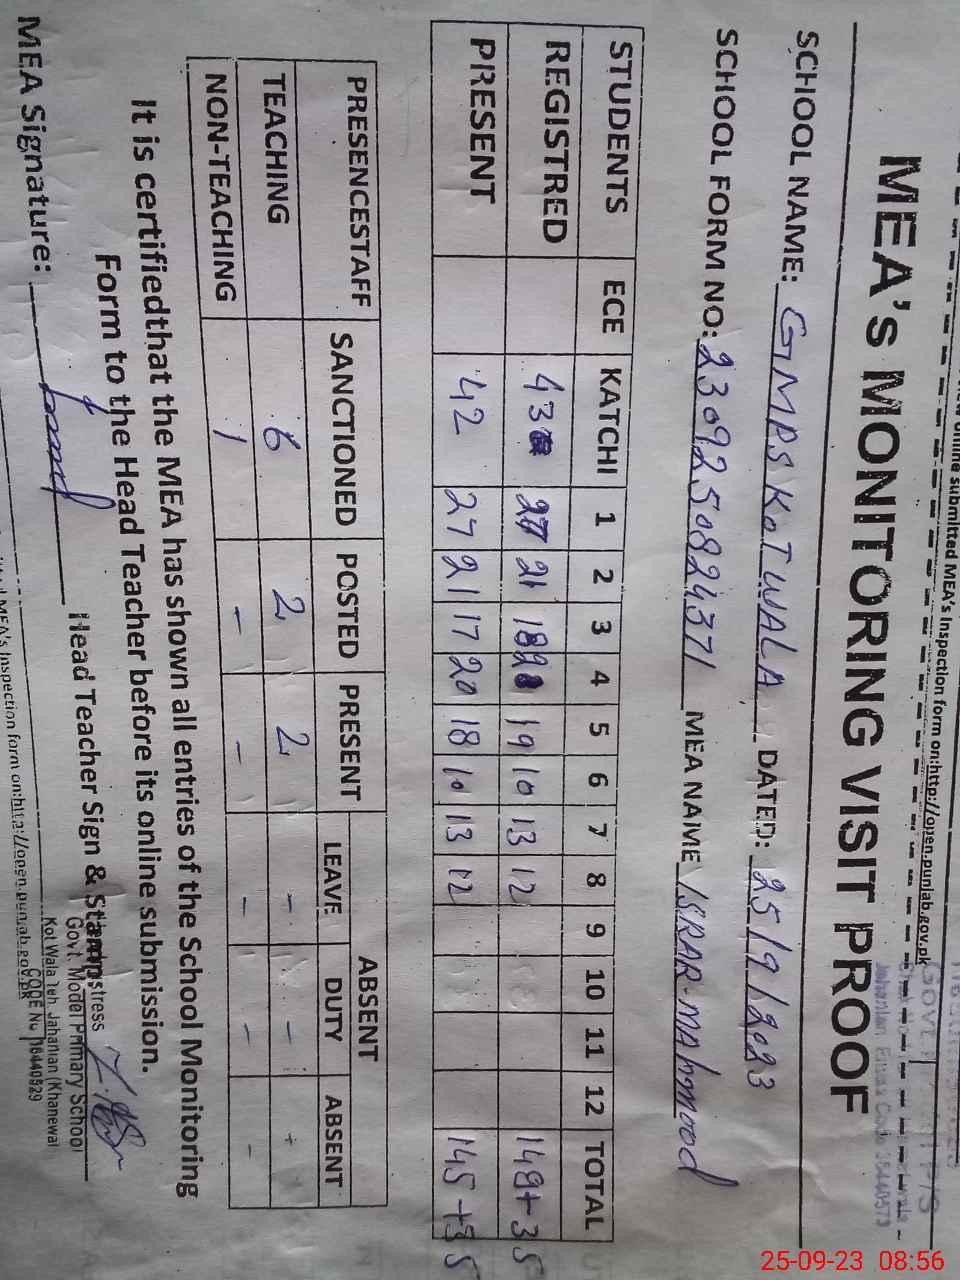 online submitted MEA's Inspection form on:http://open.punjab.gov.pk
MEA's MONITORING VISIT PROOF
SCHOOL NAME: GMPS KOTWALA DATED: 25/9/2023
SCHOOL FORM NO: 2309250824371 MEA NAME ISRAR-MAHMOOD
STUDENTS ECE KATCHI 1 2 3 4 5 6 7 8 9 10 11 12 TOTAL
REGISTRED 43 27 21 18 19 10 13 12 149+35
PRESENT 42 27 21 17 20 18 10 13 12 145+35
PRESENCESTAFF SANCTIONED POSTED PRESENT ABSENT
LEAVE DUTY ABSENT
TEACHING 6 2 2 - - -
NON-TEACHING 1 - - - - -
It is certifiedthat the MEA has shown all entries of the School Monitoring
Form to the Head Teacher before its online submission.
MEA Signature: Head Teacher Sign & Stamp
Govt. Model Primary School
Kot Wala Teh Jahanian (Khanewal
CODE No
MEA's Inspection form on:http://open.punjab.gov.pk
25-09-23 08:56